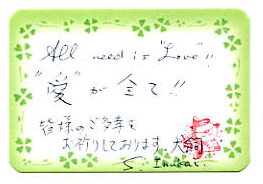 All need is "Love"!!
"愛"が全て!!
皆様のご多幸を
お祈りしております。犬飼
S. Inukai.